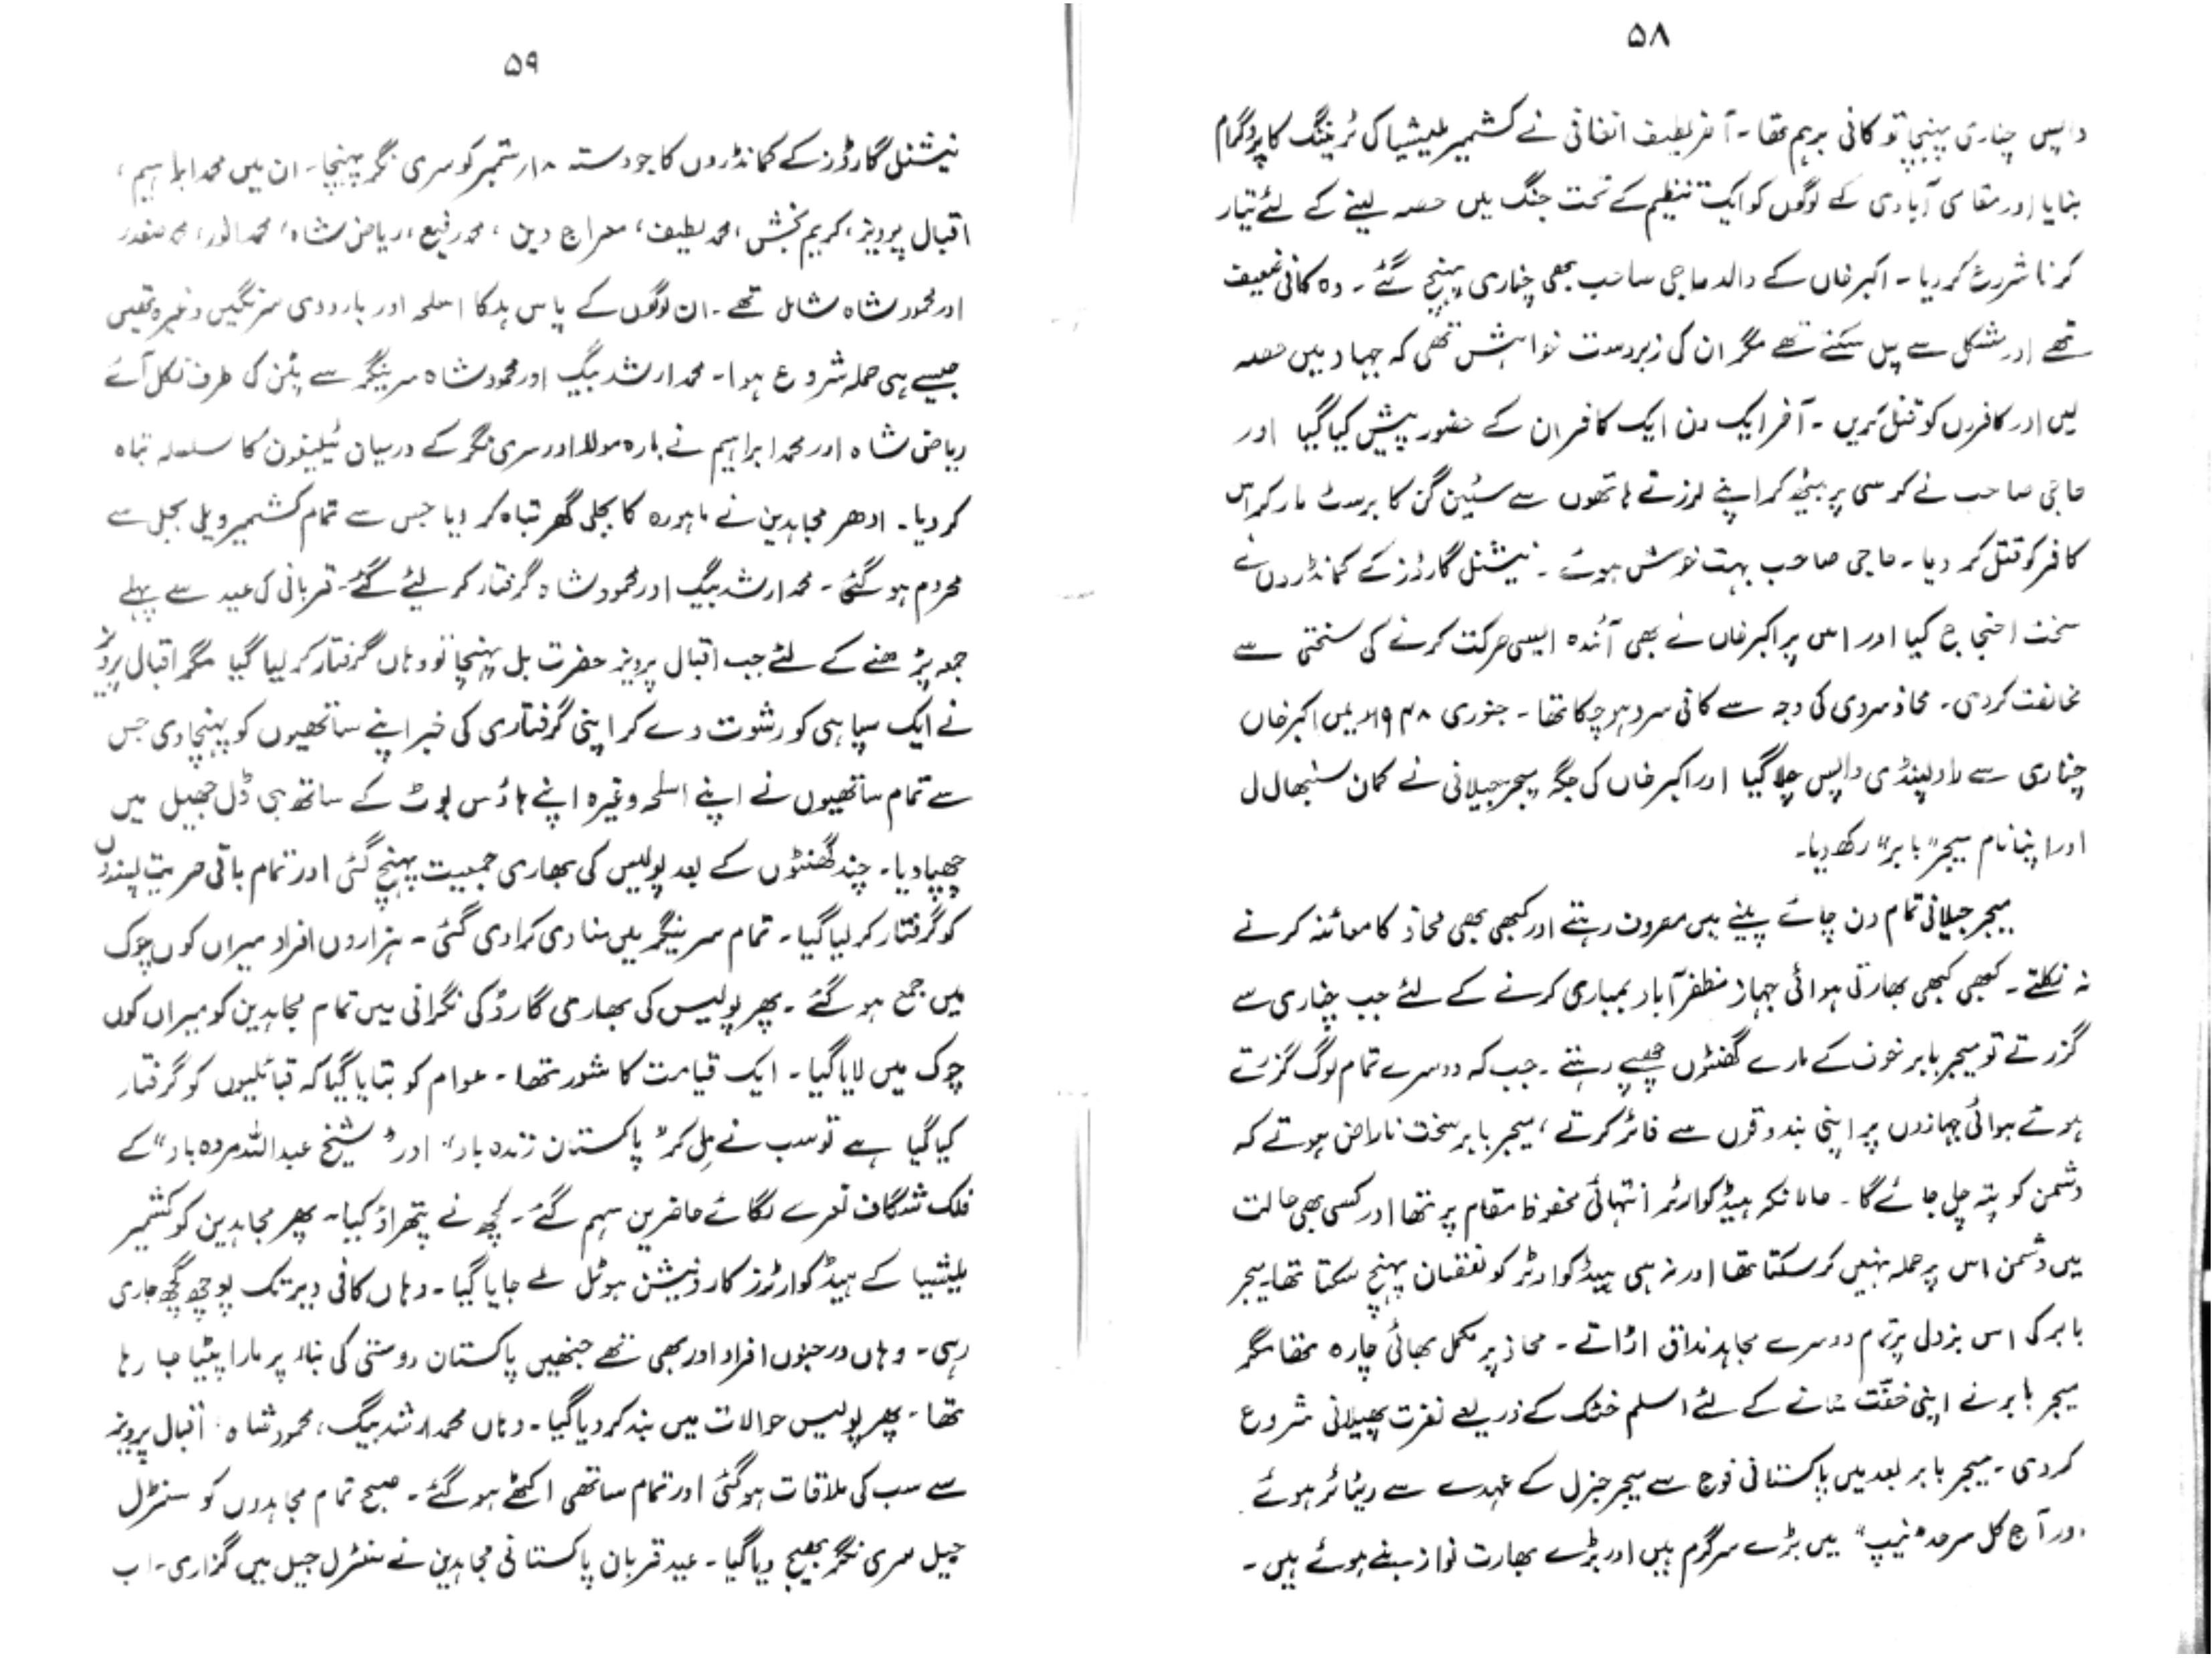 ۵۸
واپس چناری پہنچا تو کافی برہم تھا۔ آخر لطیف افغانی نے کشمیر ملیشیا کی ٹریننگ کا پروگرام
بنایا اور مقامی آبادی کے لوگوں کو ایک تنظیم کے تحت جنگ میں حصہ لینے کے لئے تیار
کرنا شروع کر دیا۔ اکبر خاں کے والد حاجی صاحب بھی چناری پہنچ گئے۔ وہ کافی ضعیف
تھے اور مشکل سے چل سکتے تھے مگر ان کی زبردست خواہش تھی کہ جہاد میں حصہ
لیں اور کافروں کو قتل کریں۔ آخر ایک دن ایک کافر ان کے حضور پیش کیا گیا اور
حاجی صاحب نے کرسی پر بیٹھ کر اپنے لرزتے ہاتھوں سے سٹین گن کا برسٹ مار کر اس
کافر کو قتل کر دیا۔ حاجی صاحب بہت خوش ہوئے۔ نیشنل گارڈز کے کمانڈروں نے
سخت احتجاج کیا اور اس پر اکبر خاں نے بھی آئندہ ایسی حرکت کرنے کی سختی سے
مخالفت کر دی۔ محاذ سردی کی وجہ سے کافی سرد ہو چکا تھا۔ جنوری ۱۹۴۸ء میں اکبر خاں
چناری سے راولپنڈی واپس چلا گیا اور اکبر خاں کی جگہ میجر جیلانی نے کمان سنبھال لی
اور اپنا نام میجر "بابر" رکھ دیا۔
میجر جیلانی تمام دن چائے پینے میں مصروف رہتے اور کبھی بھی محاذ کا معائنہ کرنے
نہ نکلتے۔ کبھی کبھی بھارتی ہوائی جہاز مظفر آباد بمباری کرنے کے لئے جب چناری سے
گزرتے تو میجر بابر خوف کے مارے گھنٹوں چھپے رہتے۔ جب کہ دوسرے تمام لوگ گزرتے
ہوئے ہوائی جہازوں پر اپنی بندوقوں سے فائر کرتے، میجر بابر سخت ناراض ہوتے کہ
دشمن کو پتہ چل جائے گا۔ حالانکہ ہیڈ کوارٹر انتہائی محفوظ مقام پر تھا اور کسی بھی حالت
میں دشمن اس پر حملہ نہیں کر سکتا تھا اور نہ ہی ہیڈ کوارٹر کو نقصان پہنچ سکتا تھا۔ میجر
بابر کی اس بزدلی پر تمام دوسرے مجاہد مذاق اڑاتے۔ محاذ پر مکمل بھائی چارہ تھا مگر
میجر بابر نے اپنی خفّت مٹانے کے لئے اسلم خٹک کے ذریعے نفرت پھیلانی شروع
کر دی۔ میجر بابر بعد میں پاکستانی فوج سے میجر جنرل کے عہدے سے ریٹائر ہوئے
اور آج کل سرحد "نیپ" میں بڑے سرگرم ہیں اور بڑے بھارت نواز بنے ہوئے ہیں۔
۵۹
نیشنل گارڈز کے کمانڈروں کا جو دستہ ۱۸ ستمبر کو سری نگر پہنچا۔ ان میں محمد ابراہیم،
اقبال پرویز، کریم بخش، محمد لطیف، معراج دین، محمد رفیع، ریاض شاہ، محمد انور، محمد صفدر
اور محمود شاہ شامل تھے۔ ان لوگوں کے پاس ہلکا اسلحہ اور بارودی سرنگیں وغیرہ تھیں
جیسے ہی حملہ شروع ہوا۔ محمد ارشد بیگ اور محمود شاہ سرینگر سے پٹن کی طرف نکل آئے
ریاض شاہ اور محمد ابراہیم نے بارہ مولا اور سری نگر کے درمیان ٹیلیفون کا سلسلہ تباہ
کر دیا۔ ادھر مجاہدین نے ماہورہ کا بجلی گھر تباہ کر دیا جس سے تمام کشمیر ویلی بجلی سے
محروم ہو گئی۔ محمد ارشد بیگ اور محمود شاہ گرفتار کر لیئے گئے۔ قربانی کی عید سے پہلے
جمعہ پڑھنے کے لئے جب اقبال پرویز حضرت بل پہنچا تو وہاں گرفتار کر لیا گیا مگر اقبال پرویز
نے ایک سپاہی کو رشوت دے کر اپنی گرفتاری کی خبر اپنے ساتھیوں کو پہنچا دی جس
سے تمام ساتھیوں نے اپنے اسلحہ وغیرہ اپنے ہاؤس بوٹ کے ساتھ ہی ڈل جھیل میں
چھپا دیا۔ چند گھنٹوں کے بعد پولیس کی بھاری جمعیت پہنچ گئی اور تمام باقی حریت پسندوں
کو گرفتار کر لیا گیا۔ تمام سرینگر میں منادی کرا دی گئی۔ ہزاروں افراد میراں کوں چوک
میں جمع ہو گئے۔ پھر پولیس کی بھاری گارڈ کی نگرانی میں تمام مجاہدین کو میراں کوں
چوک میں لایا گیا۔ ایک قیامت کا شور تھا۔ عوام کو بتایا گیا کہ قبائلیوں کو گرفتار
کیا گیا ہے تو سب نے مل کر "پاکستان زندہ باد" اور "شیخ عبداللہ مردہ باد" کے
فلک شگاف نعرے لگائے حاضرین سہم گئے۔ کچھ نے پتھراؤ کیا۔ پھر مجاہدین کو کشمیر
ملیشیا کے ہیڈ کوارٹرز کارونیشن ہوٹل لے جایا گیا۔ وہاں کافی دیر تک پوچھ گچھ جاری
رہی۔ وہاں درجنوں افراد اور بھی تھے جنھیں پاکستان دوستی کی بناء پر مارا پیٹا جا رہا
تھا۔ پھر پولیس حوالات میں بند کر دیا گیا۔ وہاں محمد ارشد بیگ، محمود شاہ، اقبال پرویز
سے سب کی ملاقات ہو گئی اور تمام ساتھی اکٹھے ہو گئے۔ صبح تمام مجاہدوں کو سنٹرل
جیل سری نگر بھیج دیا گیا۔ عید قربان پاکستانی مجاہدین نے سنٹرل جیل میں گزاری۔ اب